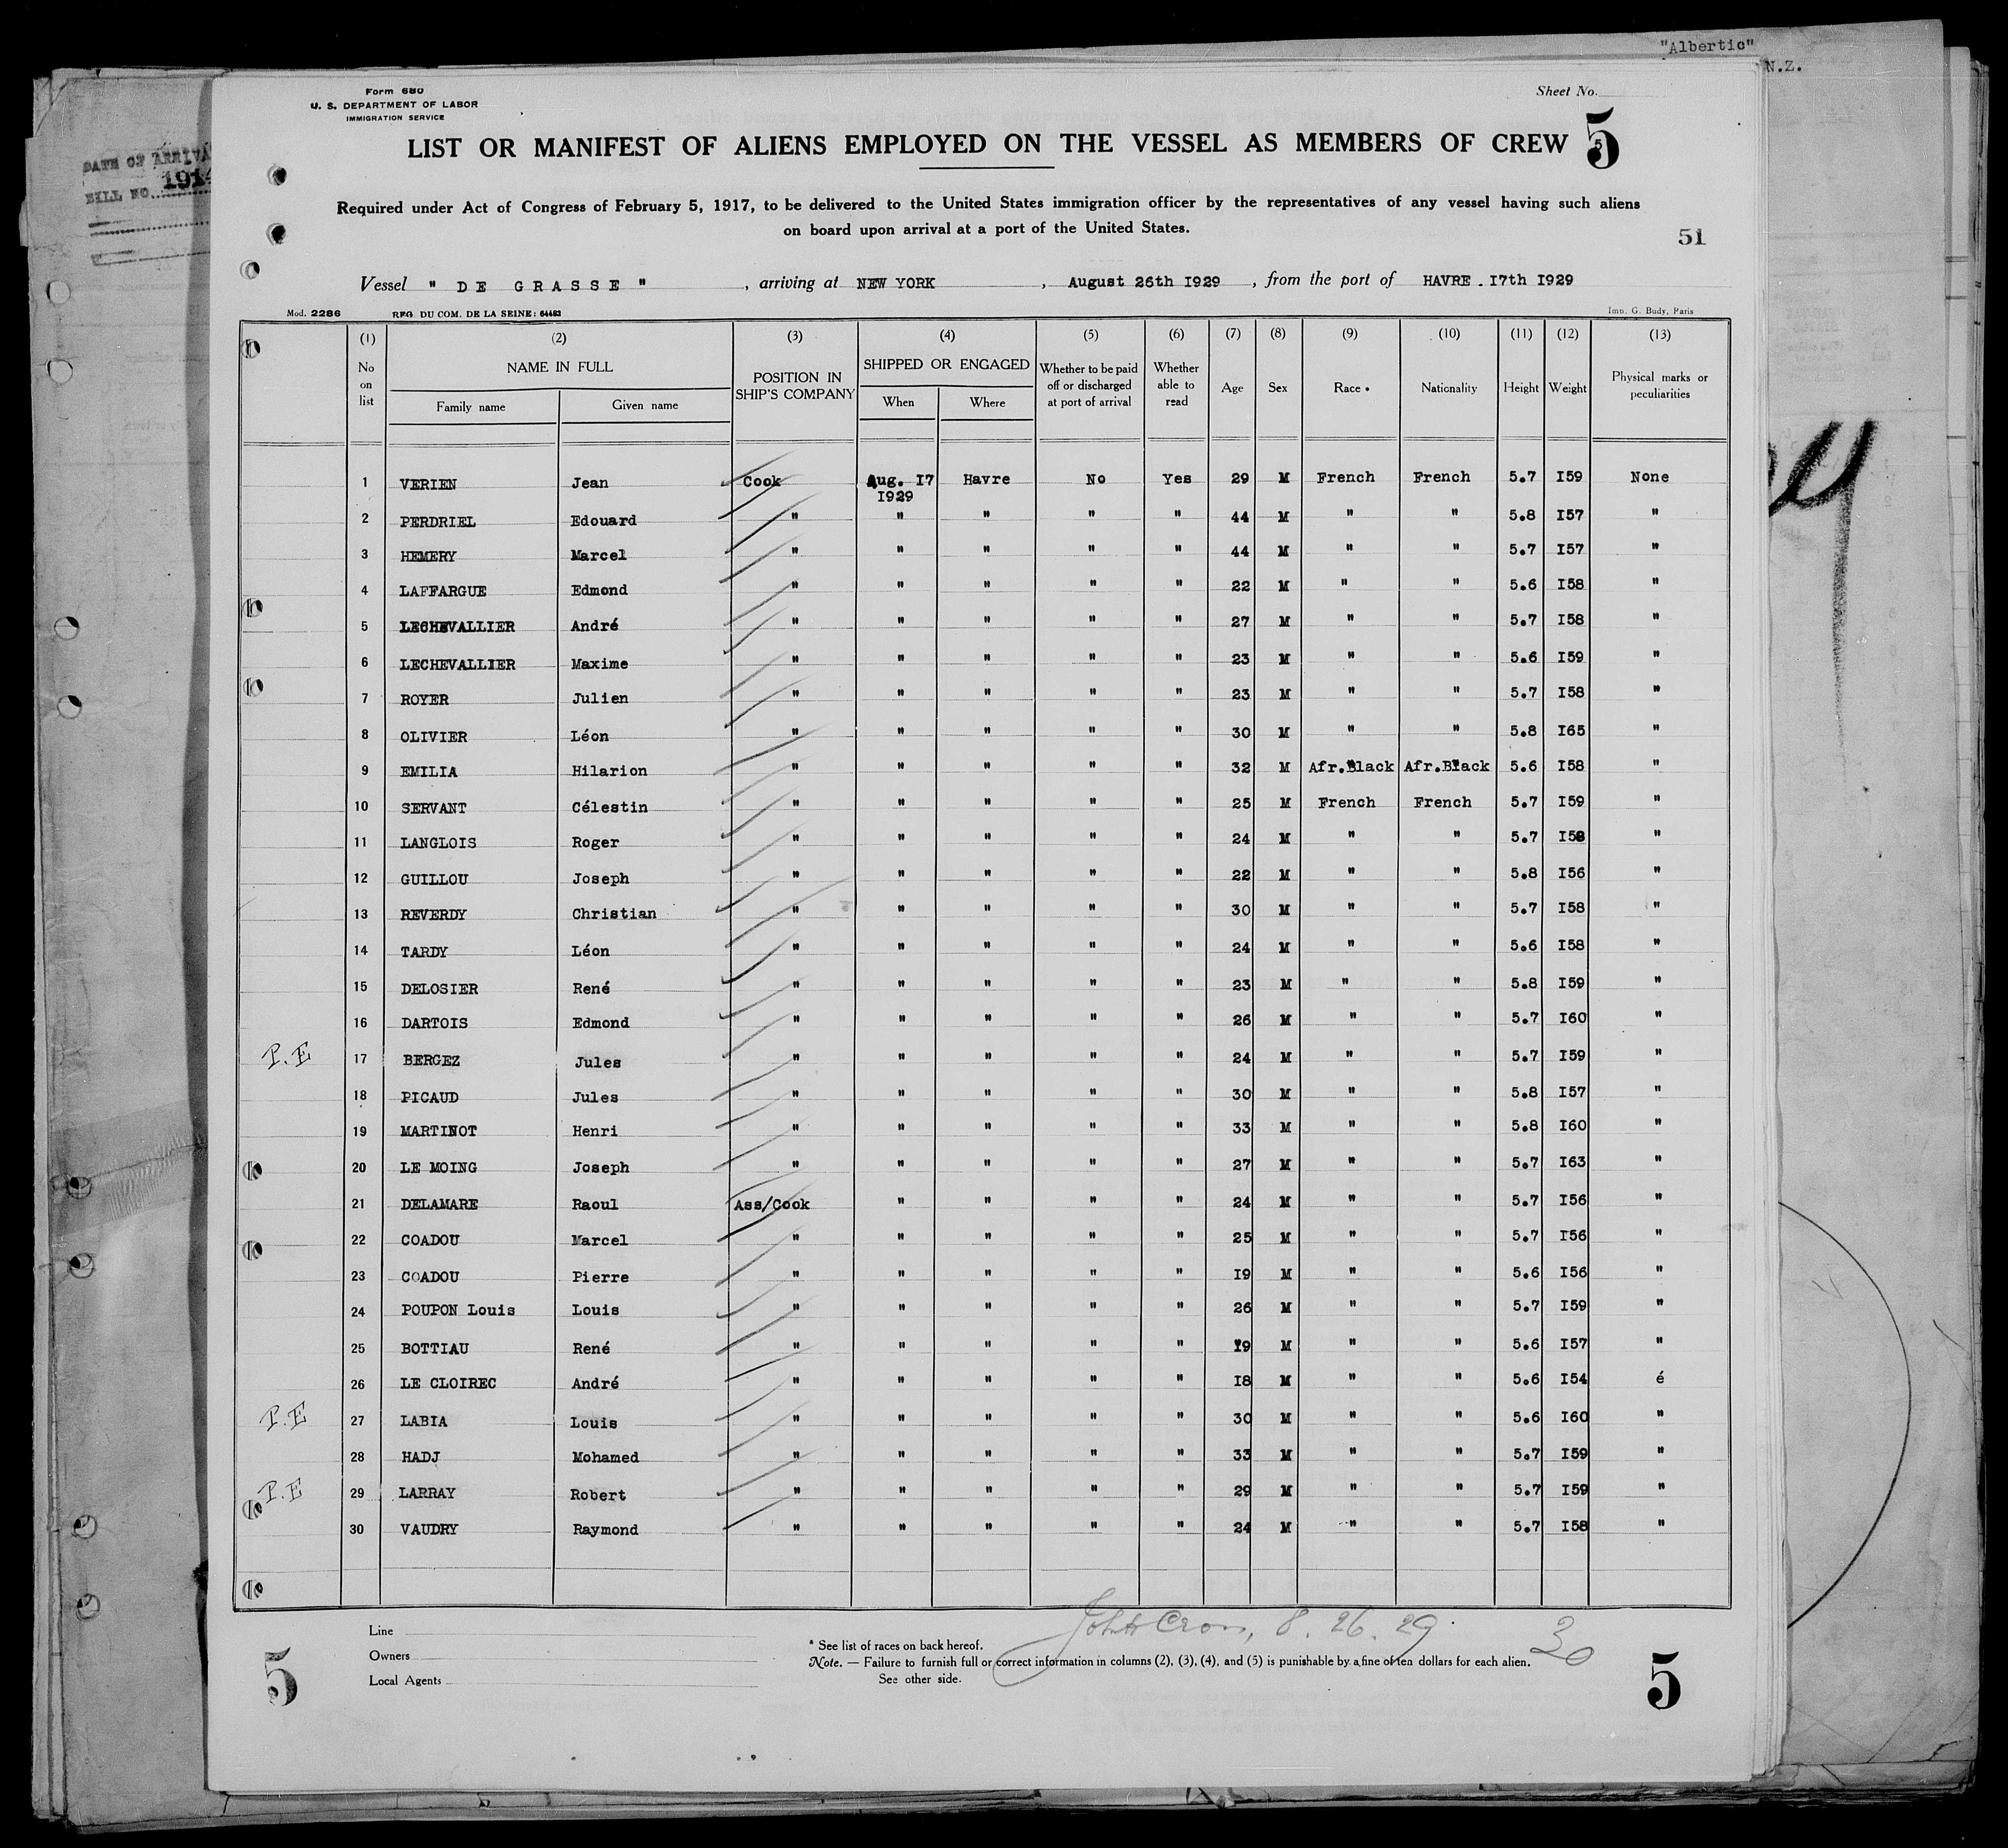 "Albertic"
N.Z.
Form 680
U. S. DEPARTMENT OF LABOR
IMMIGRATION SERVICE
Sheet No.
5
LIST OR MANIFEST OF ALIENS EMPLOYED ON THE VESSEL AS MEMBERS OF CREW 5
DATE OF ARRIVA
BILL NO. 1914
Required under Act of Congress of February 5, 1917, to be delivered to the United States immigration officer by the representatives of any vessel having such aliens
on board upon arrival at a port of the United States.
51
Vessel " DE GRASSE " , arriving at NEW YORK , August 26th I929 , from the port of HAVRE . I7th I929
Mod. 2286 REG. DU COM. DE LA SEINE: 64483 Imp. G. Budy, Paris
(1) (2) (3) (4) (5) (6) (7) (8) (9) (10) (11) (12) (13)
No on list NAME IN FULL Family name Given name POSITION IN SHIP'S COMPANY SHIPPED OR ENGAGED When Where Whether to be paid off or discharged at port of arrival Whether able to read Age Sex Race * Nationality Height Weight Physical marks or peculiarities
1 VERIEN Jean Cook Aug. I7 I929 Havre No Yes 29 M French French 5.7 I59 None
2 PERDRIEL Edouard " " " " " 44 M " " 5.8 I57 "
3 HEMERY Marcel " " " " " 44 M " " 5.7 I57 "
4 LAFFARGUE Edmond " " " " " 22 M " " 5.6 I58 "
5 LECHEVALLIER André " " " " " 27 M " " 5.7 I58 "
6 LECHEVALLIER Maxime " " " " " 23 M " " 5.6 I59 "
7 ROYER Julien " " " " " 23 M " " 5.7 I58 "
8 OLIVIER Léon " " " " " 30 M " " 5.8 I65 "
9 EMILIA Hilarion " " " " " 32 M Afr.Black Afr.Black 5.6 I58 "
10 SERVANT Célestin " " " " " 25 M French French 5.7 I59 "
11 LANGLOIS Roger " " " " " 24 M " " 5.7 I58 "
12 GUILLOU Joseph " " " " " 22 M " " 5.8 I56 "
13 REVERDY Christian " " " " " 30 M " " 5.7 I58 "
14 TARDY Léon " " " " " 24 M " " 5.6 I58 "
15 DELOSIER René " " " " " 23 M " " 5.8 I59 "
16 DARTOIS Edmond " " " " " 26 M " " 5.7 I60 "
P.E 17 BERGEZ Jules " " " " " 24 M " " 5.7 I59 "
18 PICAUD Jules " " " " " 30 M " " 5.8 I57 "
19 MARTINOT Henri " " " " " 33 M " " 5.8 I60 "
20 LE MOING Joseph " " " " " 27 M " " 5.7 I63 "
21 DELAMARE Raoul Ass/Cook " " " " 24 M " " 5.7 I56 "
22 COADOU Marcel " " " " " 25 M " " 5.7 I56 "
23 COADOU Pierre " " " " " I9 M " " 5.6 I56 "
24 POUPON Louis Louis " " " " " 26 M " " 5.7 I59 "
25 BOTTIAU René " " " " " I9 M " " 5.6 I57 "
26 LE CLOIREC André " " " " " I8 M " " 5.6 I54 é
P.E 27 LABIA Louis " " " " " 30 M " " 5.6 I60 "
28 HADJ Mohamed " " " " " 33 M " " 5.7 I59 "
P.E 29 LARRAY Robert " " " " " 29 M " " 5.7 I59 "
30 VAUDRY Raymond " " " " " 24 M " " 5.7 I58 "
Line
Owners
Local Agents
* See list of races on back hereof.
Note. — Failure to furnish full or correct information in columns (2), (3), (4), and (5) is punishable by a fine of ten dollars for each alien.
See other side.
8. 26. 29
30
5
5